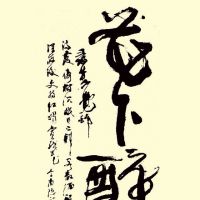 花下醉
尋芳不覺醉
流霞倚树沉眠日已斜客散酒醒
深夜後更持红烛赏残花